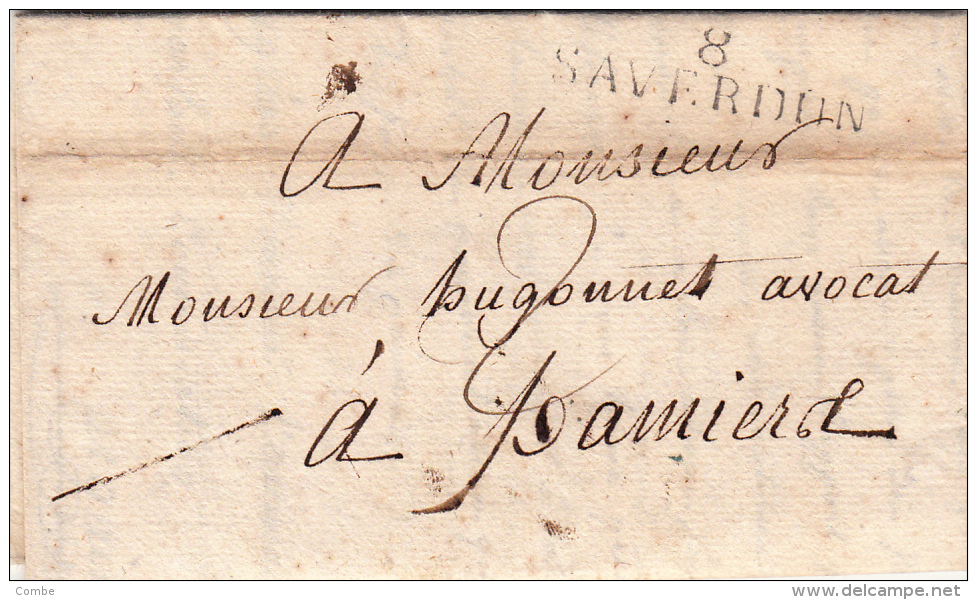 8
SAVERDUN
A Monsieur
Monsieur hugonnet avocat
á Pamiers
Combe
www.delcampe.net